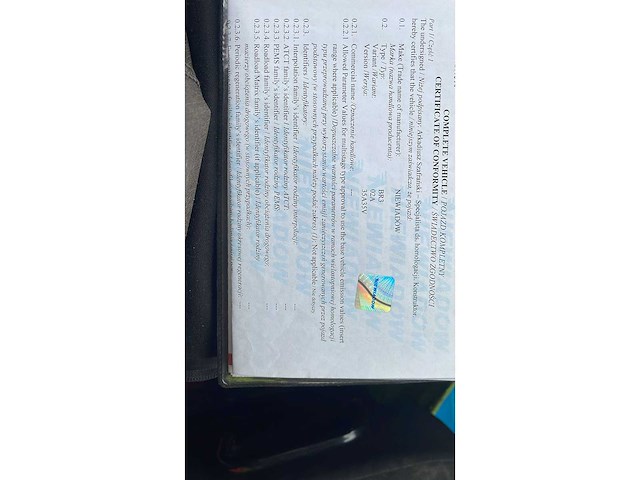 COMPLETE VEHICLE / POJAZD KOMPLETNY
CERTIFICATE OF CONFORMITY / ŚWIADECTWO ZGODNOŚCI
Part I / Część I
The undersigned / Niżej podpisany: Arkadiusz Szafrański – Specjalista ds. homologacji, Konstruktor
hereby certifies that the vehicle / niniejszym zaświadcza, że pojazd:
0.1. Make (Trade name of manufacturer): NIEWIADÓW
Marka (nazwa handlowa producenta):
0.2. Type / Typ: BR3
Variant / Wariant: 02A
Version / Wersja: 35A35V
0.2.1. Commercial name / Oznaczenie handlowe: ---
0.2.2.1 Allowed Parameter Values for multistage type approval to use the base vehicle emission values (insert
range where applicable) / Dopuszczalne wartości parametrów w ramach wielostopniowej homologacji
typu przeprowadzanej przy wykorzystaniu wartości emisji zanieczyszczeń generowanych przez pojazd
podstawowy (w stosownych przypadkach należy podać zakres) (1): Not applicable / Nie dotyczy
0.2.3. Identifiers / Identyfikatory:
0.2.3.1. Interpolation family's identifier / Identyfikator rodziny interpolacji: ---
0.2.3.2. ATCT family's identifier / Identyfikator rodziny ATCT: ---
0.2.3.3. PEMS family's identifier / Identyfikator rodziny PEMS: ---
0.2.3.4. Roadload family's identifier / Identyfikator rodziny obciążenia drogowego: ---
0.2.3.5. Roadload Matrix family's identifier (if applicable) / Identyfikator rodziny
macierzy obciążenia drogowego (w stosownych przypadkach): ---
0.2.3.6. Periodic regeneration family's identifier / Identyfikator rodziny okresowej regeneracji: ---
NIEWIADÓW